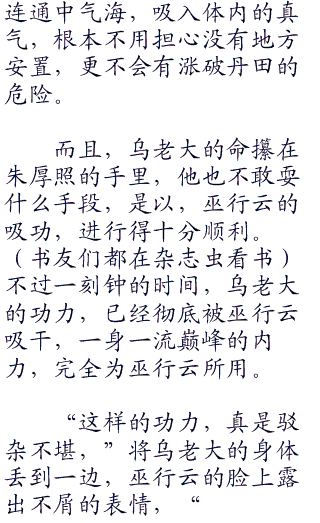 连通中气海，吸入体内的真
气，根本不用担心没有地方
安置，更不会有涨破丹田的
危险。
而且，乌老大的命攥在
朱厚照的手里，他也不敢耍
什么手段，是以，巫行云的
吸功，进行得十分顺利。
（书友们都在杂志虫看书）
不过一刻钟的时间，乌老大
的功力，已经彻底被巫行云
吸干，一身一流巅峰的内
力，完全为巫行云所用。
“这样的功力，真是驳
杂不堪，”将乌老大的身体
丢到一边，巫行云的脸上露
出不屑的表情，“